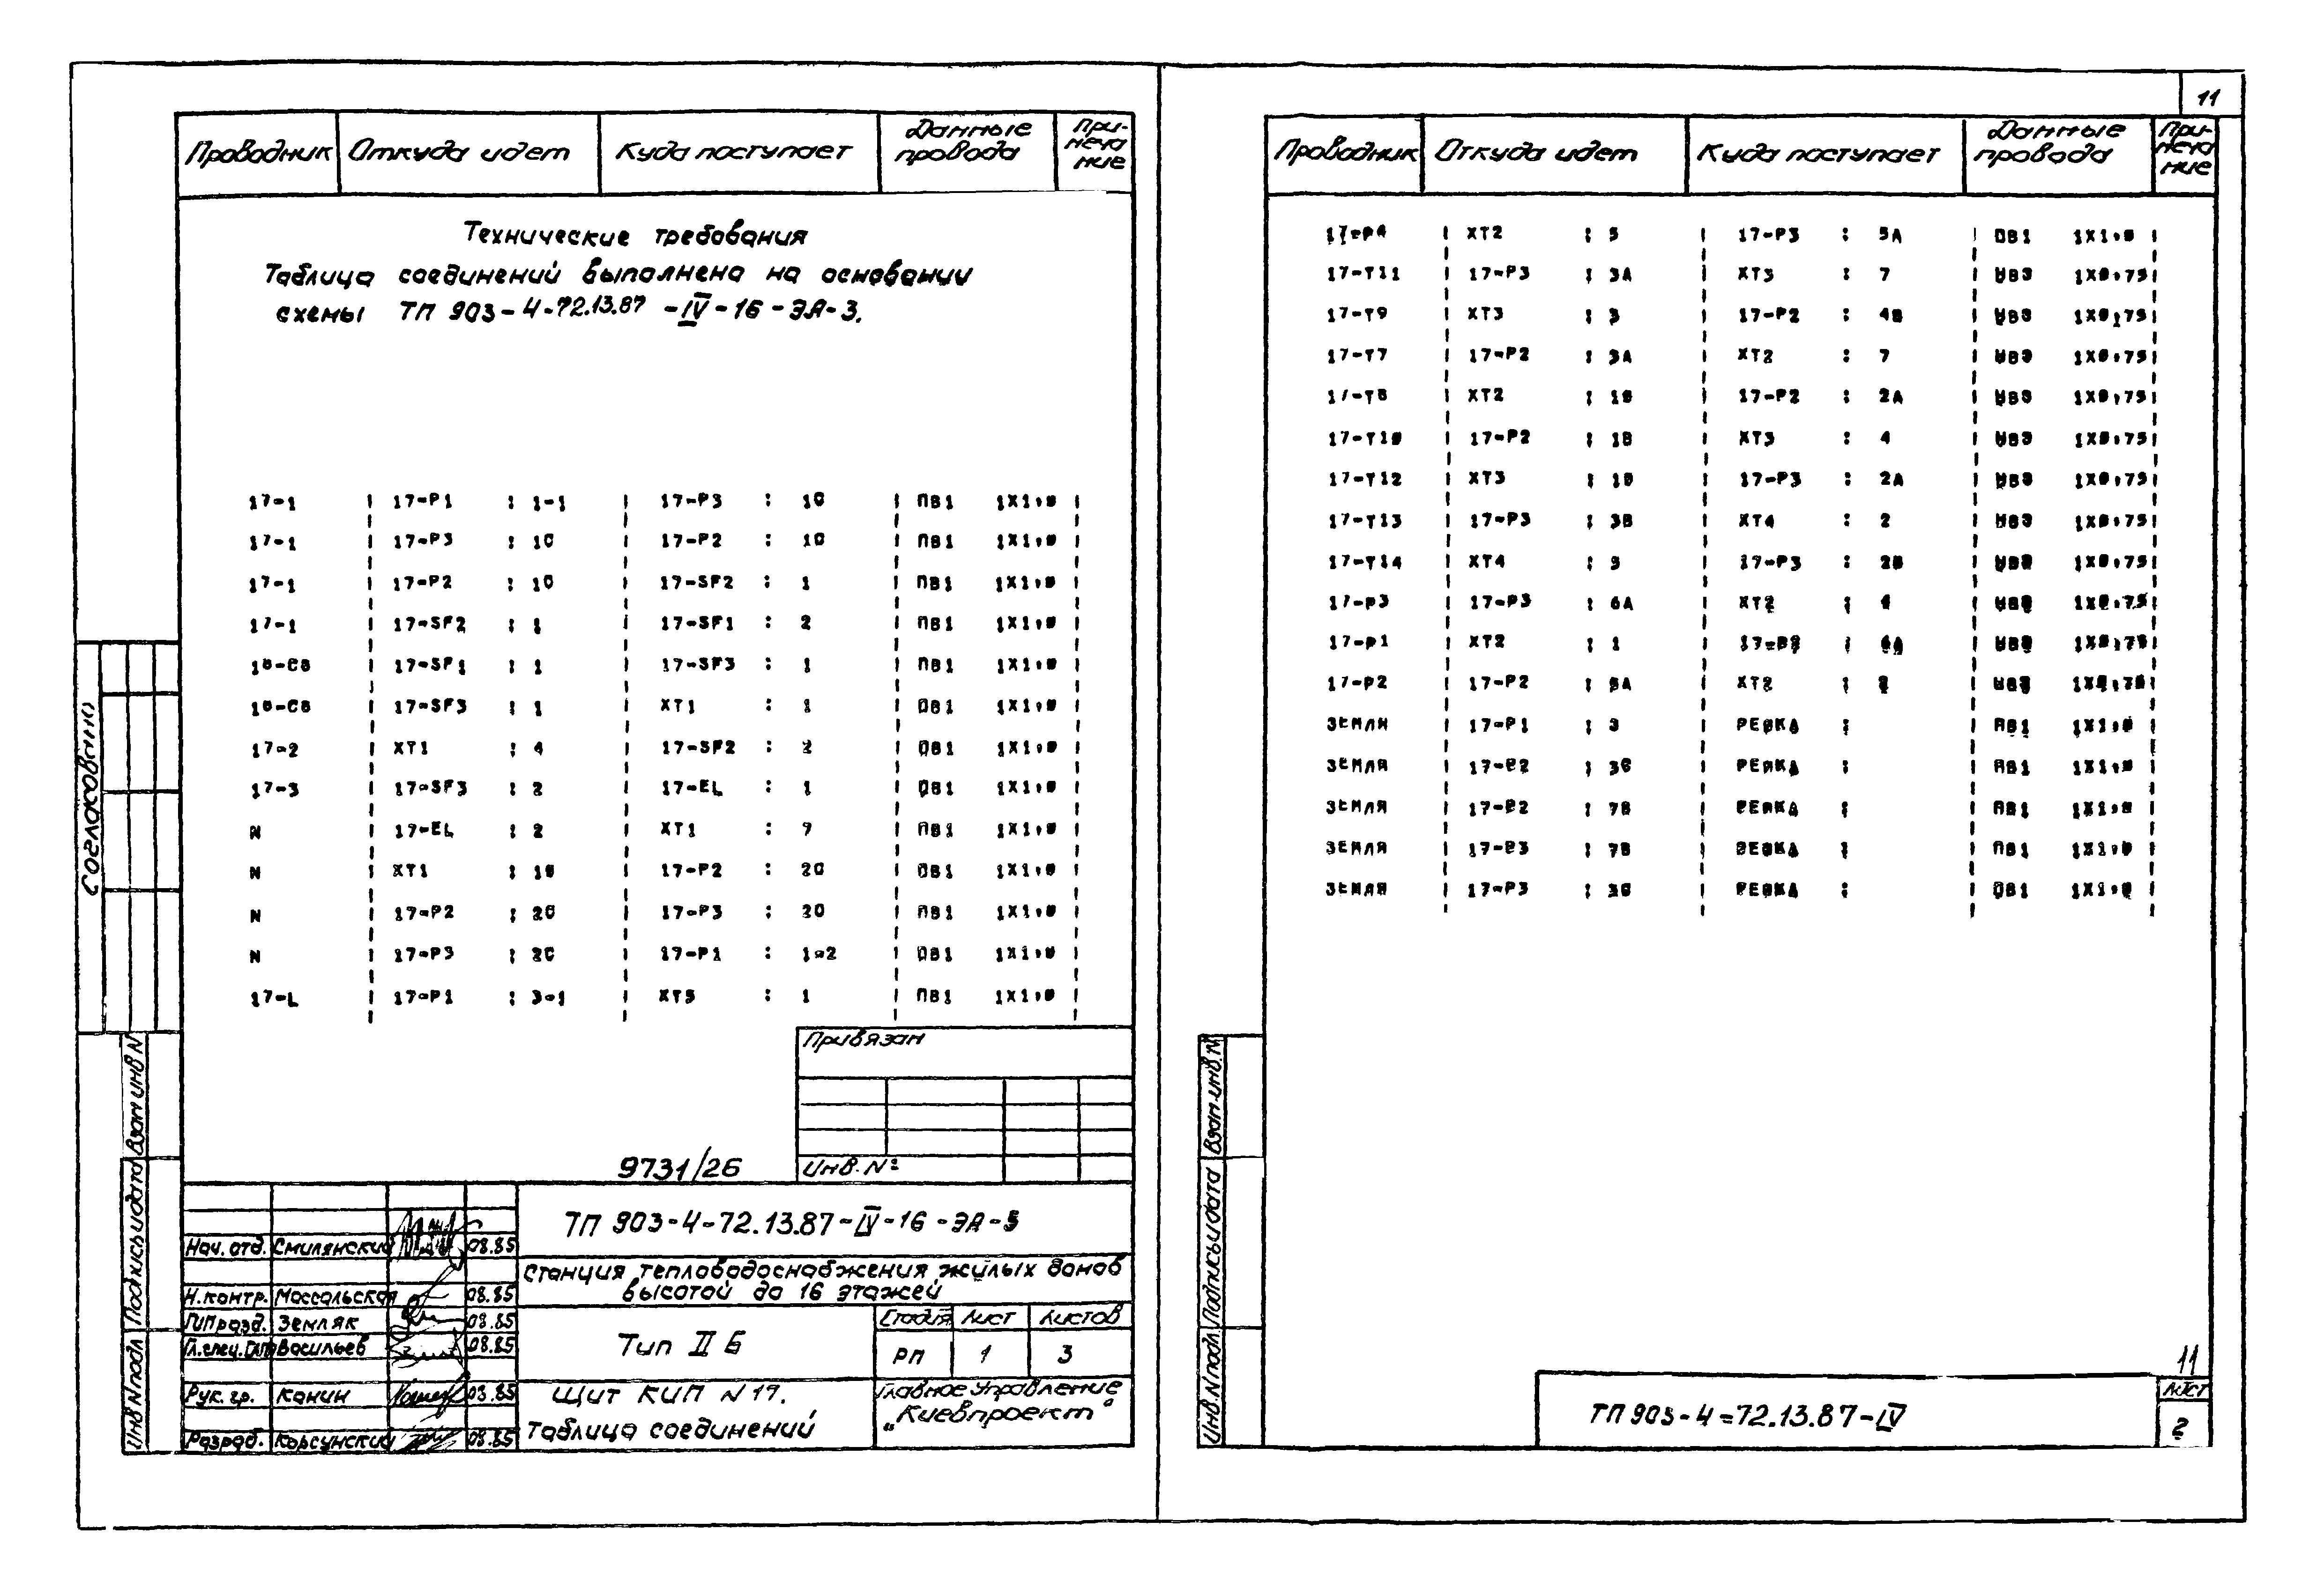 Проводник Откуда идет Куда поступает Данные провода Примечание
Технические требования
Таблица соединений выполнена на основании
схемы ТП 903-4-72.13.87-IV-16-ЭА-3.
17-1 17-P1 : 1-1 17-P3 : 1C ПВ1 1X1,0
17-1 17-P3 : 1C 17-P2 : 1C ПВ1 1X1,0
17-1 17-P2 : 1C 17-SF2 : 1 ПВ1 1X1,0
17-1 17-SF2 : 1 17-SF1 : 2 ПВ1 1X1,0
17-SF1 : 1 17-SF3 : 1 ПВ1 1X1,0
17-SF3 : 1 XT1 : 1 ПВ1 1X1,0
17-2 XT1 : 4 17-SF2 : 2 ПВ1 1X1,0
17-3 17-SF3 : 2 17-EL : 1 ПВ1 1X1,0
N 17-EL : 2 XT1 : 7 ПВ1 1X1,0
N XT1 : 10 17-P2 : 2C ПВ1 1X1,0
N 17-P2 : 2C 17-P3 : 2C ПВ1 1X1,0
N 17-P3 : 2C 17-P1 : 1-2 ПВ1 1X1,0
17-L 17-P1 : 3-1 XT5 : 1 ПВ1 1X1,0
Привязан
Инв. №
9731/26
Согласовано
Взам инв N
Подпись и дата
Инв N подл
ТП 903-4-72.13.87-IV-16-ЭА-5
Нач. отд. Смилянский 08.85
Н.контр. Моссальская 08.85
ГИП разд. Земляк 08.85
Гл.спец. Васильев 08.85
Рук. гр. Канин 08.85
Разраб. Корсунский 08.85
Станция тепловодоснабжения жилых домов
высотой до 16 этажей
Тип II Б
Стадия Лист Листов
РП 1 3
Щит КИП N 17.
Таблица соединений
Главное Управление
„Киевпроект"
11
Проводник Откуда идет Куда поступает Данные провода Примечание
17-P4 XT2 : 5 17-P3 : 5A ПВ1 1X1,0
17-T11 17-P3 : 3A XT3 : 7 1X0,75
17-T9 XT3 : 3 17-P2 : 4B 1X0,75
17-T7 17-P2 : 3A XT2 : 7 1X0,75
17-T8 XT2 : 10 17-P2 : 2A 1X0,75
17-T10 17-P2 : 1B XT3 : 4 1X0,75
17-T12 XT3 : 10 17-P3 : 2A 1X0,75
17-T13 17-P3 : 3B XT4 : 2 1X0,75
17-T14 XT4 : 17-P3 : 2B 1X0,75
17-P3 17-P3 : 6A XT2 : 4 1X0,75
17-P1 XT2 : 1 17-P2 : 6A 1X0,75
17-P2 17-P2 : 5A XT2 : 1X0,75
ЗЕМЛЯ 17-P1 : 3 РЕЙКА : ПВ1 1X1,0
ЗЕМЛЯ 17-P2 : 3C РЕЙКА : ПВ1 1X1,0
ЗЕМЛЯ 17-P2 : 7B РЕЙКА : ПВ1 1X1,0
ЗЕМЛЯ 17-P3 : 7B РЕЙКА : ПВ1 1X1,0
ЗЕМЛЯ 17-P3 : 3C РЕЙКА : ПВ1 1X1,0
Взам.инв.N
Подпись и дата
Инв.N подл
ТП 903-4-72.13.87-IV
11
Лист
2